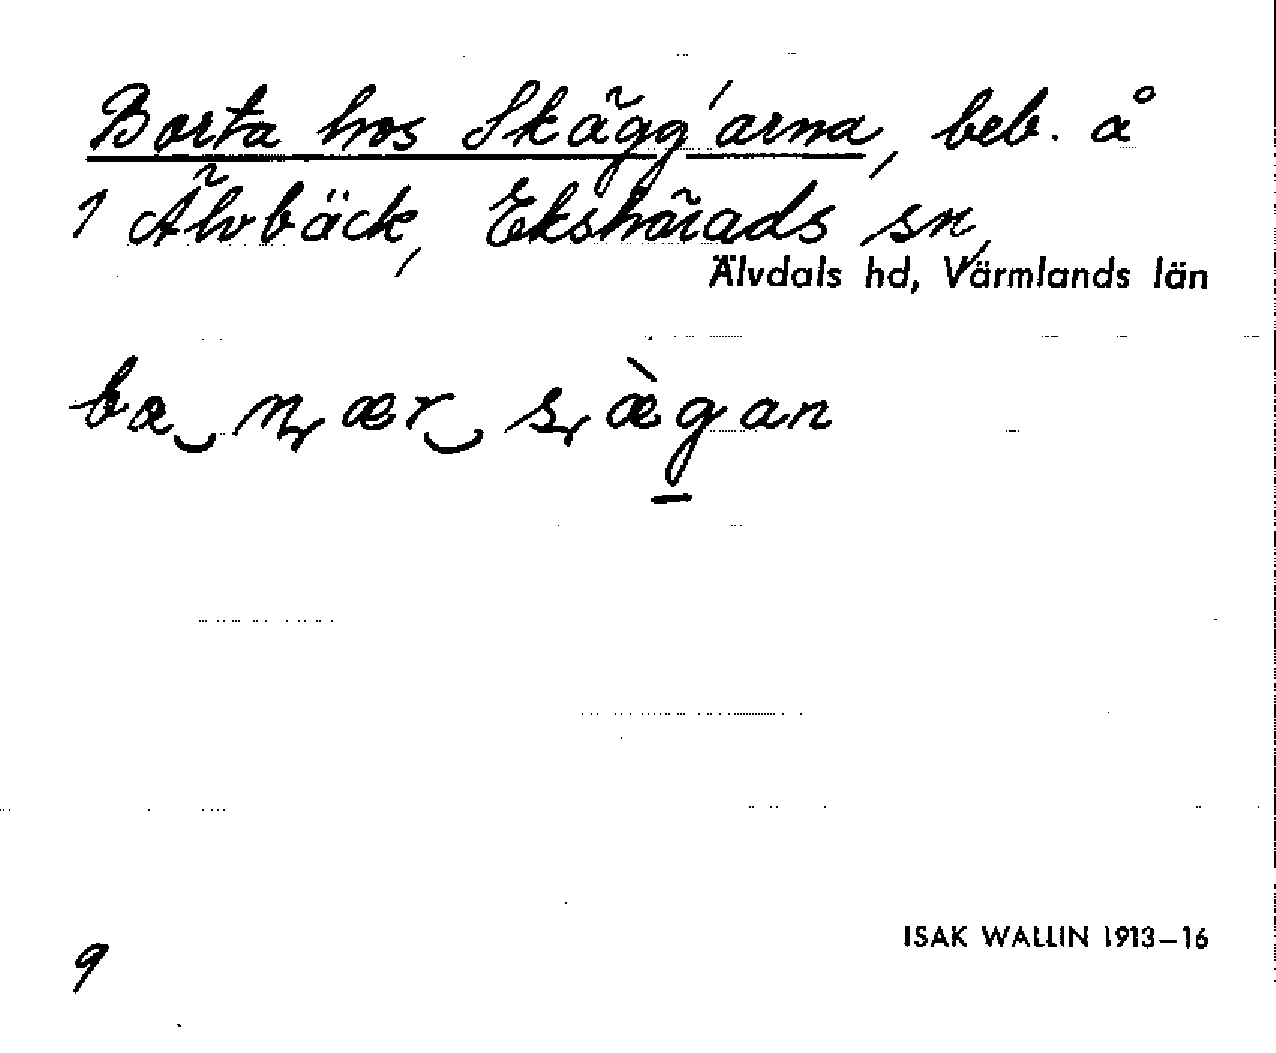 Borta hos Skägg'arna, beb. å
1 Älvbäck, Ekshärads sn,
Älvdals hd, Värmlands län
9
ISAK WALLIN 1913–16